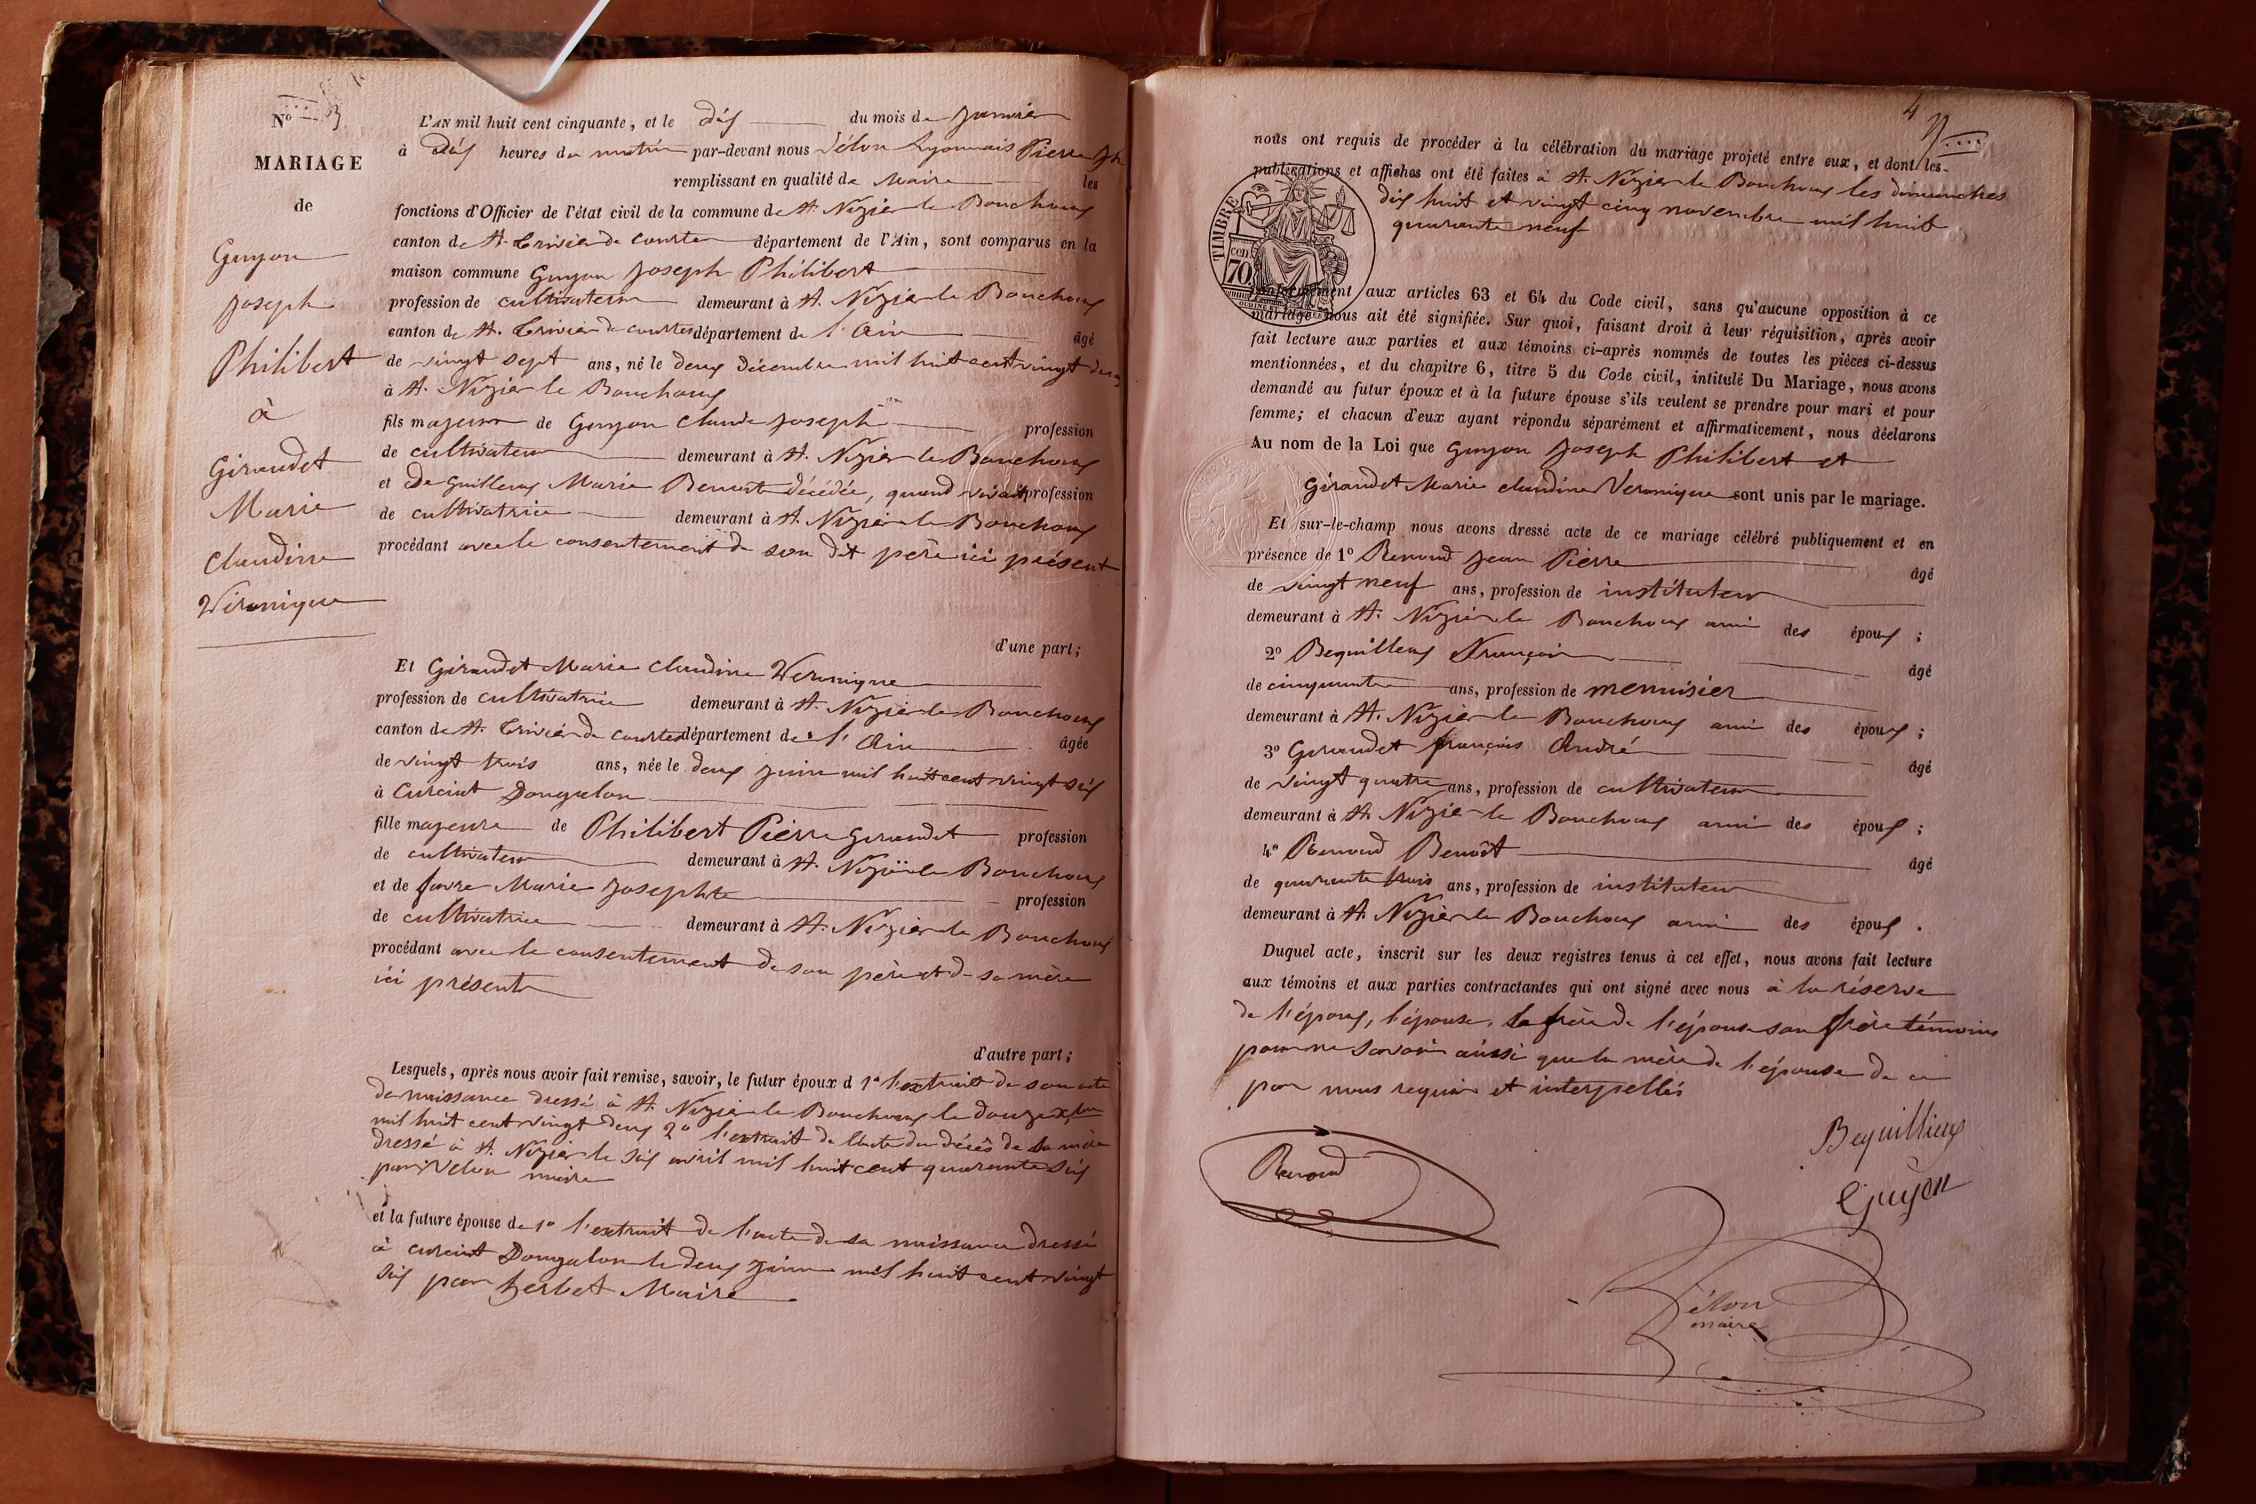 N° 3
MARIAGE
de
Guyon
Joseph
Philibert
à
Girandet
Marie
Claudine
Véronique
L'AN mil huit cent cinquante, et le dix du mois de Janvier
à dix heures du matin par-devant nous Vélon Lyonnais Pierre Jh
remplissant en qualité de Maire les
fonctions d'Officier de l'état civil de la commune de St Nizier le Bouchoux
canton de St. Trivier de Courtes département de l'Ain, sont comparus en la
maison commune Guyon Joseph Philibert
profession de cultivateur demeurant à St. Nizier le Bouchoux
canton de St. Trivier de Courtes département de l'Ain âgé
de vingt sept ans, né le deux Décembre mil huit cent vingt deux
à St. Nizier le Bouchoux
fils majeur de Guyon Claude Joseph profession
de cultivateur demeurant à St. Nizier le Bouchoux
et De Guilleux Marie Benoite décédée, quand vivait profession
de cultivatrice demeurant à St. Nizier le Bouchoux
procédant avec le consentement de son dit père ici présent
d'une part;
Et Girandet Marie Claudine Véronique
profession de cultivatrice demeurant à St. Nizier le Bouchoux
canton de St. Trivier de Courtes département de l'Ain âgée
de vingt trois ans, née le deux Juin mil huit cent vingt six
à Curciat Dongalon
fille majeure de Philibert Pierre Girandet profession
de cultivateur demeurant à St. Nizier le Bouchoux
et de favre Marie Josephte profession
de cultivatrice demeurant à St. Nizier le Bouchoux
procédant avec le consentement de son père et de sa mère
ici présents
d'autre part;
Lesquels, après nous avoir fait remise, savoir, le futur époux d 1° l'extrait de son acte
de naissance dressé à St. Nizier le Bouchoux le douze Xbre
mil huit cent vingt deux 2° l'extrait de l'acte du décès de sa mère
dressé à St. Nizier le six avril mil huit cent quarante six
par Vélon maire
et la future épouse de 1° l'extrait de l'acte de sa naissance dressé
à curciat Dongalon le deux Juin mil huit cent vingt
six par herbet Maire
4
nous ont requis de procéder à la célébration du mariage projeté entre eux, et dont les
publications et affiches ont été faites à St. Nizier le Bouchoux les dimanches
dix huit et vingt cinq novembre mil huit
quarante neuf
TIMBRE
CEN
70
Conformément aux articles 63 et 64 du Code civil, sans qu'aucune opposition à ce
mariage nous ait été signifiée. Sur quoi, faisant droit à leur réquisition, après avoir
fait lecture aux parties et aux témoins ci-après nommés de toutes les pièces ci-dessus
mentionnées, et du chapitre 6, titre 5 du Code civil, intitulé Du Mariage, nous avons
demandé au futur époux et à la future épouse s'ils veulent se prendre pour mari et pour
femme; et chacun d'eux ayant répondu séparément et affirmativement, nous déclarons
Au nom de la Loi que Guyon Joseph Philibert et
Girandet Marie Claudine Véronique sont unis par le mariage.
Et sur-le-champ nous avons dressé acte de ce mariage célébré publiquement et en
présence de 1° Renoud Jean Pierre âgé
de vingt neuf ans, profession de instituteur
demeurant à St. Nizier le Bouchoux ami des époux;
2° Bequilleux François âgé
de cinquante ans, profession de menuisier
demeurant à St. Nizier le Bouchoux ami des époux;
3° Girandet françois André âgé
de vingt quatre ans, profession de cultivateur
demeurant à St Nizier le Bouchoux ami des époux;
4° Renoud Benoît âgé
de quarante trois ans, profession de instituteur
demeurant à St. Nizier le Bouchoux ami des époux.
Duquel acte, inscrit sur les deux registres tenus à cet effet, nous avons fait lecture
aux témoins et aux parties contractantes qui ont signé avec nous à la réserve
de l'époux, l'épouse, le père de l'épouse son frère témoins
pour ne savoir aussi que la mère de l'épouse de ce
par nous requis et interpellés
Bequillieux
Renoud
Guyon
Vélon
maire